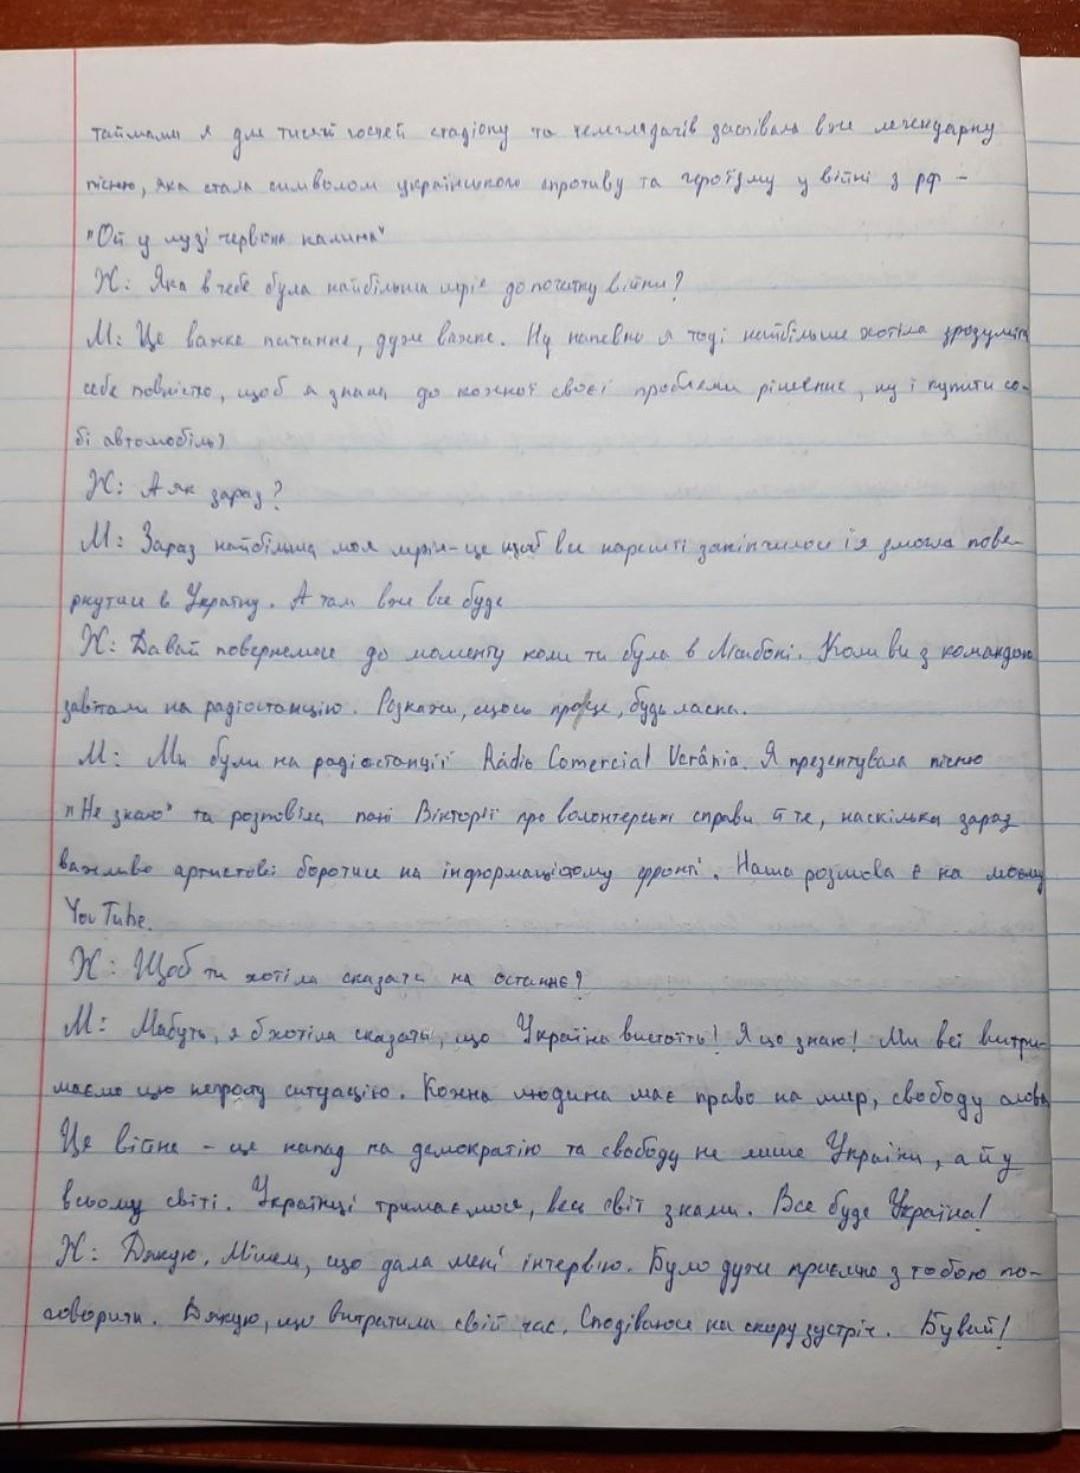 таймами я для тисяч гостей стадіону та телеглядачів заспівала вже легендарну
пісню, яка стала символом українського спротиву та героїзму у війні з рф -
"Ой у лузі червона калина"
Ж: Яка в тебе була найбільша мрія до початку війни?
М: Це важке питання, дуже важке. Ну напевно я тоді найбільше хотіла зрозуміти
себе повністю, щоб я знала до кожної своєї проблеми рішення, ну і купити со-
бі автомобіль)
Ж: А як зараз?
М: Зараз найбільша моя мрія - це щоб все нарешті закінчилося і я змогла пове-
рнутися в Україну. А там вже все буде
Ж: Давай повернемося до моменту коли ти була в Лісабоні. Коли ви з командою
завітали на радіостанцію. Розкажи, щось про це, будь ласка.
М: Ми були на радіостанції Rádio Comercial Ucrânia. Я презентувала пісню
"Не знаю" та розповіла пані Вікторії про волонтерські справи й те, наскільки зараз
важливо артистові боротися на інформаційному фронті. Наша розмова є на моєму
YouTube.
Ж: Щоб ти хотіла сказати на останнє?
М: Мабуть, я б хотіла сказати, що Україна вистоїть! Я цо знаю! Ми всі витри-
маємо цю непросту ситуацію. Кожна людина має право на мир, свободу слова
Це війна - це напад на демократію та свободу не лише України, а й у
всьому світі. Українці тримаємося, весь світ з нами. Все буде Україна!
Ж: Дякую, Мішель, що дала мені інтервію. Було дуже приємно з тобою по-
говорити. Дякую, що витратила свій час. Сподіваюся на скору зустріч. Бувай!